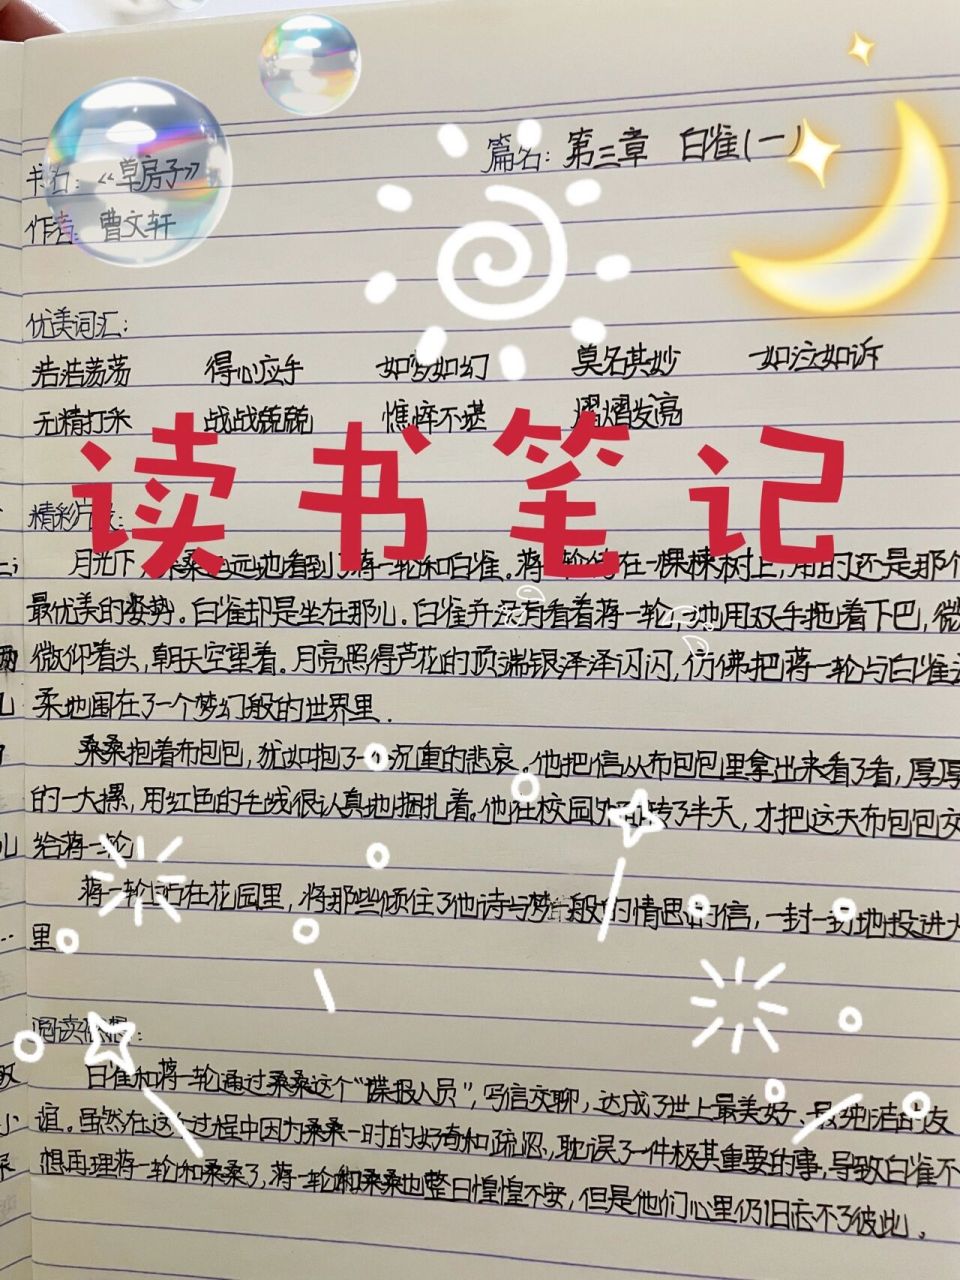 篇名：第三章 白雀(一)
书名：《草房子》
作者：曹文轩
优美词汇：
浩浩荡荡 得心应手 如梦如幻 莫名其妙 如泣如诉
无精打采 战战兢兢 憔悴不堪 熠熠发亮
读书笔记
精彩片段：
月光下，桑桑远远地看到了蒋一轮和白雀。蒋一轮倚在一棵楝树上，用的还是那个
最优美的姿势。白雀却是坐在那儿。白雀并没有看着蒋一轮，她用双手托着下巴，微
微仰着头，朝天空望着。月亮照得芦花的顶端银泽泽闪闪，仿佛把蒋一轮与白雀
柔地围在了一个梦幻般的世界里.
桑桑抱着布包包，犹如抱了一个沉重的悲哀。他把信从布包包里拿出来看了看，厚厚
的一大摞，用红色的毛线很认真地捆扎着。他在校园外转了半天，才把这天布包包交
给蒋一轮
蒋一轮后在花园里，将那些倾住了他诗与梦一般的情思的信，一封一封地投进火
里.
阅读感想：
白雀和蒋一轮通过桑桑这个"谍报人员"，写信交聊，达成了世上最美好、最纯洁的友
谊。虽然在这个过程中因为桑桑一时的好奇和疏忽，耽误了一件极其重要的事，导致白雀不
想再理蒋一轮和桑桑了，蒋一轮和桑桑也整日惶惶不安，但是他们心里仍旧忘不了彼此。